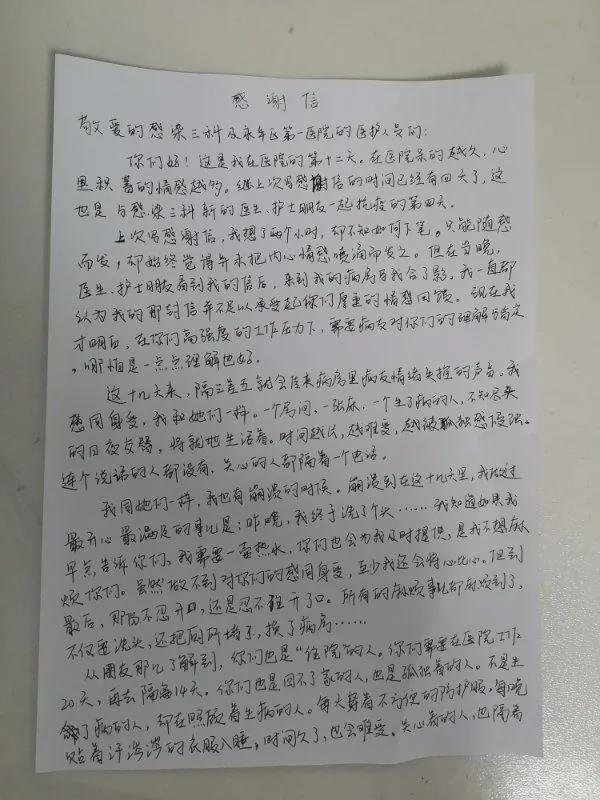 感谢信
敬爱的感染三科及永年区第一医院的医护人员们:
你们好!这是我在医院的第十九天。在医院呆的越久,心
里积蓄的情感越多。继上次写感谢信的时间已经有四天了,这
也是与感染三科新的医生、护士朋友一起抗疫的第四天。
上次写感谢信,我想了两个小时,却不知如何下笔。只能随感
而发,却始终觉得并未把内心情感喷涌而发之。但在当晚,
医生、护士朋友看到我的信后,来到我的病房与我合了影。我一直都
认为我的那封信并不足以承受起你们厚重的情感回馈。现在我
才明白,在你们高强度的工作压力下,需要病友对你们的理解与肯定
,哪怕是一点点理解也好。
这十九天来,隔三差五就会传来病房里病友情绪失控的声音。我
感同身受,我和她们一样。一个房间,一张床,一个生了病的人,不知尽头
的日夜交替,将就地生活着。时间越长,越难受,越被孤独感侵强。
连个说话的人都没有,关心的人都隔着一个电话。
我同她们一样,我也有崩溃的时候。崩溃到在这十九天里,我做过
最开心最满足的事儿是:昨晚,我终于洗了个头……我知道如果我
早点告诉你们,我需要一壶热水,你们也会为我及时提供,是我不想麻
烦你们。虽然做不到对你们的感同身受,至少我还会将心比心。但到
最后,那份不忍开口,还是忍不住开了口。所有的麻烦事儿都麻烦到了,
不仅要洗头,还把厕所堵了,换了病房……
从朋友那儿了解到,你们也是“住院”的人。你们需要在医院工作
20天,再去隔离14天。你们也是回不了家的人,也是孤独着的人。不是生
了病的人,却在照顾着生病的人。每天穿着不方便的防护服,每晚
贴着汗涔涔的衣服入睡,时间久了,也会难受。关心着的人,也隔着